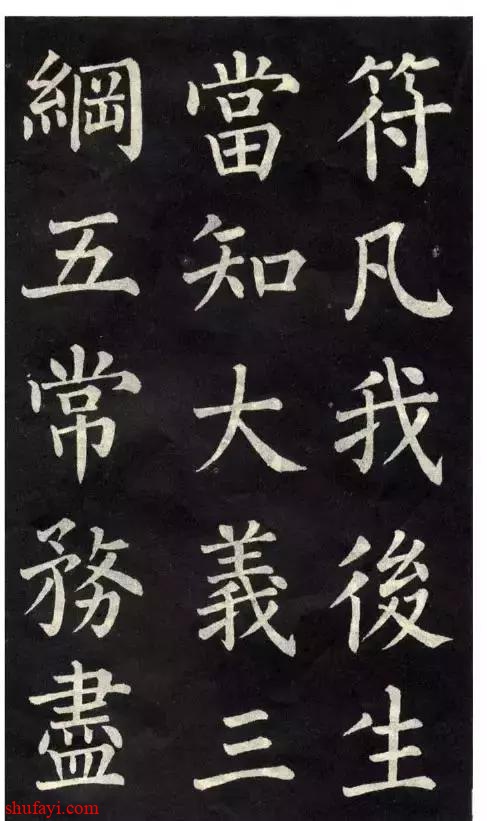 符凡我後生
當知大義三
綱五常務盡
shufayi.com